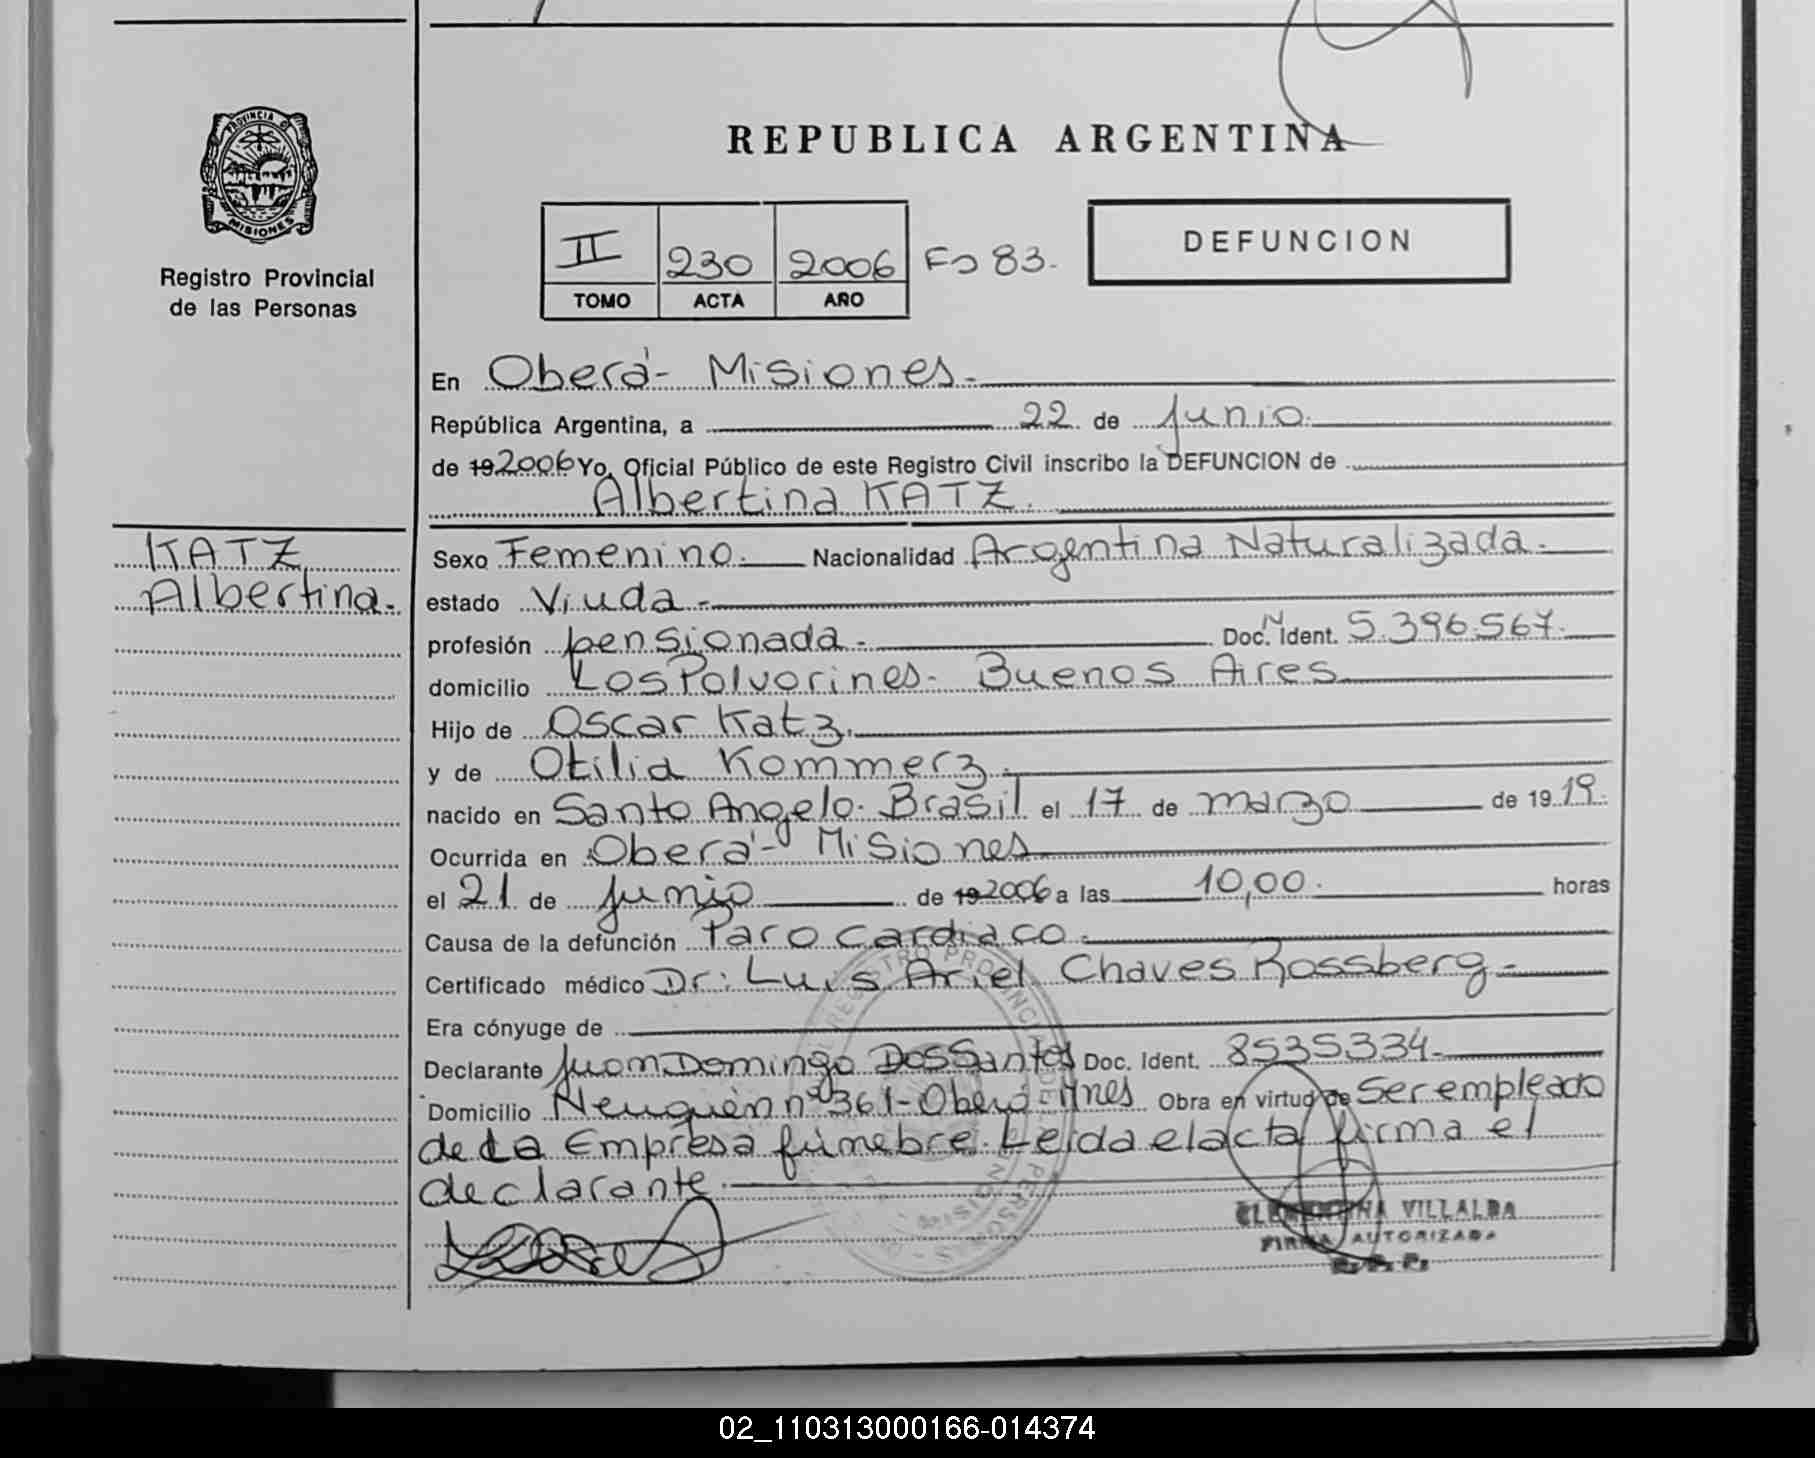 REPUBLICA ARGENTINA
PROVINCIA DE
MISIONES
Registro Provincial
de las Personas
II 230 2006 Fo 83.
TOMO ACTA AÑO
DEFUNCION
En Oberá - Misiones.
República Argentina, a 22 de junio.
de 192006 Yo, Oficial Público de este Registro Civil inscribo la DEFUNCION de
Albertina KATZ.
KATZ
Albertina.
Sexo Femenino. Nacionalidad Argentina Naturalizada.
estado Viuda
profesión pensionada. Doc. N Ident. 5.396.567.
domicilio Los Polvorines - Buenos Aires
Hijo de Oscar Katz.
y de Otilia Kommerz.
nacido en Santo Angelo. Brasil el 17 de marzo de 1919.
Ocurrida en Oberá - Misiones
el 21 de junio de 192006 a las 10,00. horas
Causa de la defunción Paro cardiaco.
Certificado médico Dr: Luis Ariel Chaves Rossberg
Era cónyuge de
Declarante Juan Domingo DosSantos Doc. Ident. 8535334
Domicilio Neuquén nº 361 - Oberá - Mnes Obra en virtud de Ser empleado
de La Empresa fúnebre. Leida el acta firma el
declarante
VILLALBA
FIRMA AUTORIZADA
R. P. P.
02_110313000166-014374